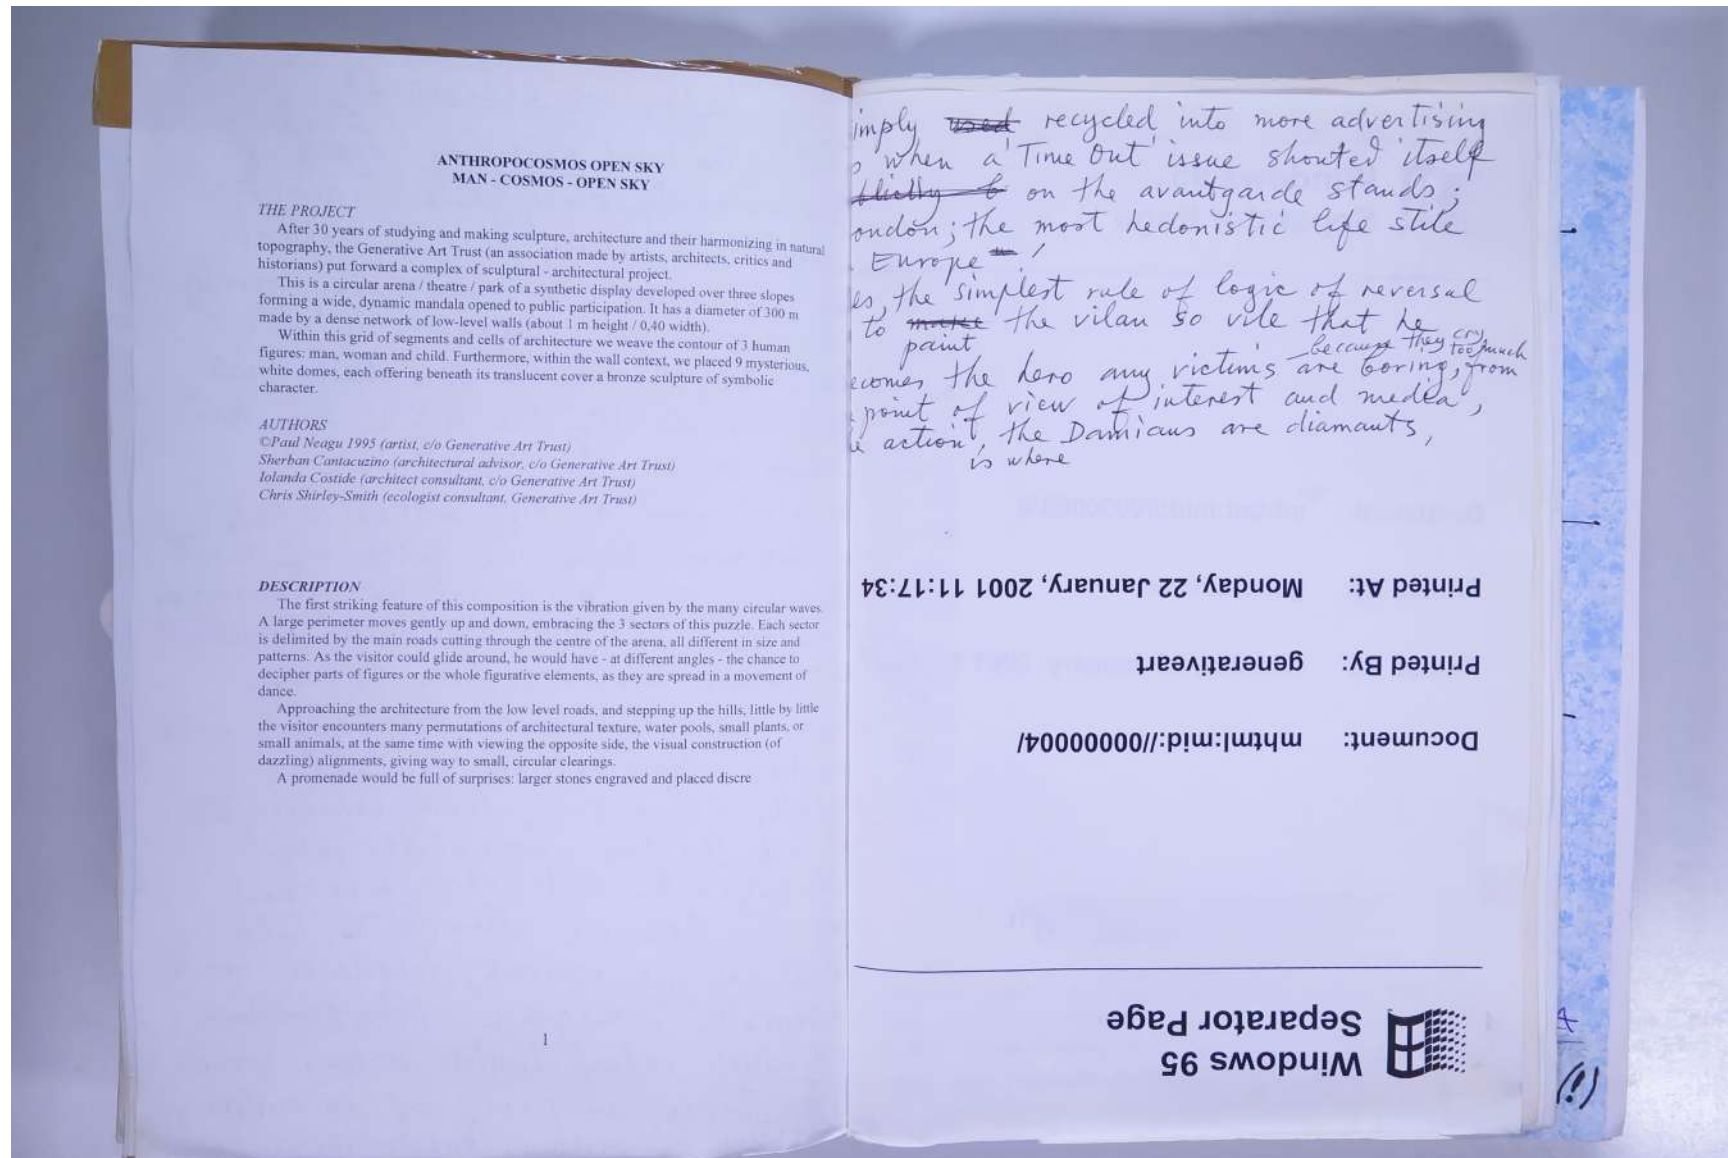 ANTHROPOCOSMOS OPEN SKY
MAN - COSMOS - OPEN SKY
THE PROJECT
After 30 years of studying and making sculpture, architecture and their harmonizing in natural
topography, the Generative Art Trust (an association made by artists, architects, critics and
historians) put forward a complex of sculptural - architectural project.
This is a circular arena / theatre / park of a synthetic display developed over three slopes
forming a wide, dynamic mandala opened to public participation. It has a diameter of 300 m
made by a dense network of low-level walls (about 1 m height / 0,40 width).
Within this grid of segments and cells of architecture we weave the contour of 3 human
figures: man, woman and child. Furthermore, within the wall context, we placed 9 mysterious,
white domes, each offering beneath its translucent cover a bronze sculpture of symbolic
character.
AUTHORS
©Paul Neagu 1995 (artist, c/o Generative Art Trust)
Sherban Cantacuzino (architectural advisor, c/o Generative Art Trust)
Iolanda Costide (architect consultant, c/o Generative Art Trust)
Chris Shirley-Smith (ecologist consultant, Generative Art Trust)
DESCRIPTION
The first striking feature of this composition is the vibration given by the many circular waves.
A large perimeter moves gently up and down, embracing the 3 sectors of this puzzle. Each sector
is delimited by the main roads cutting through the centre of the arena, all different in size and
patterns. As the visitor could glide around, he would have - at different angles - the chance to
decipher parts of figures or the whole figurative elements, as they are spread in a movement of
dance.
Approaching the architecture from the low level roads, and stepping up the hills, little by little
the visitor encounters many permutations of architectural texture, water pools, small plants, or
small animals, at the same time with viewing the opposite side, the visual construction (of
dazzling) alignments, giving way to small, circular clearings.
A promenade would be full of surprises: larger stones engraved and placed discre
1
imply used recycled into more advertising
when a 'Time Out' issue shouted itself
on the avantgarde stands;
ondon; the most hedonistic life stile
Europe !
es, the simplest rule of logic of reversal
to make the vilan so vile that he
paint
because they cry too much
ecomes the hero any victims are boring, from
point of view of interest and media,
action, the Damians are diamants,
is where
Windows 95
Separator Page
Document: mhtml:mid://00000004/
Printed By: generativeart
Printed At: Monday, 22 January, 2001 11:17:34
(!)